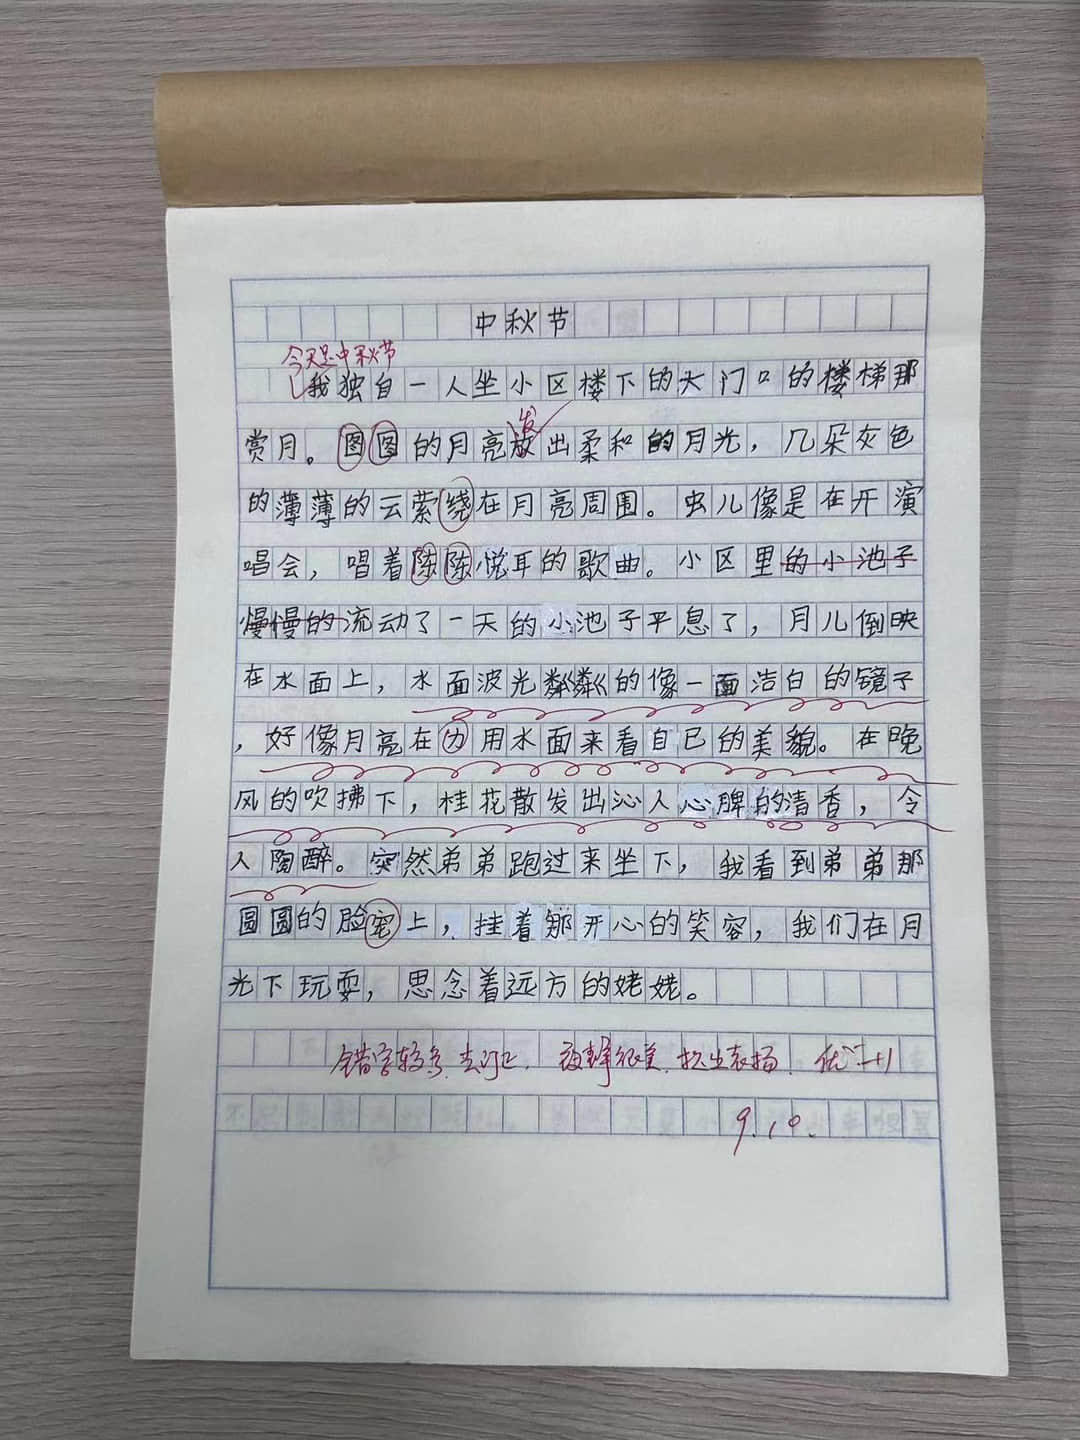 中秋节
今天是中秋节
我独自一人坐小区楼下的大门口的楼梯那
发
赏月。图图的月亮放出柔和的月光，几朵灰色
的薄薄的云萦绕在月亮周围。虫儿像是在开演
唱会，唱着陈陈悦耳的歌曲。小区里的小池子
慢慢的流动了一天的小池子平息了，月儿倒映
在水面上，水面波光粼粼的像一面洁白的镜子
，好像月亮在用水面来看自已的美貌。在晚
风的吹拂下，桂花散发出沁人心脾的清香，令
人陶醉。突然弟弟跑过来坐下，我看到弟弟那
圆圆的脸上，挂着那开心的笑容，我们在月
光下玩耍，思念着远方的姥姥。
错字较多，去订正。 很美，提出表扬。优
9.10.